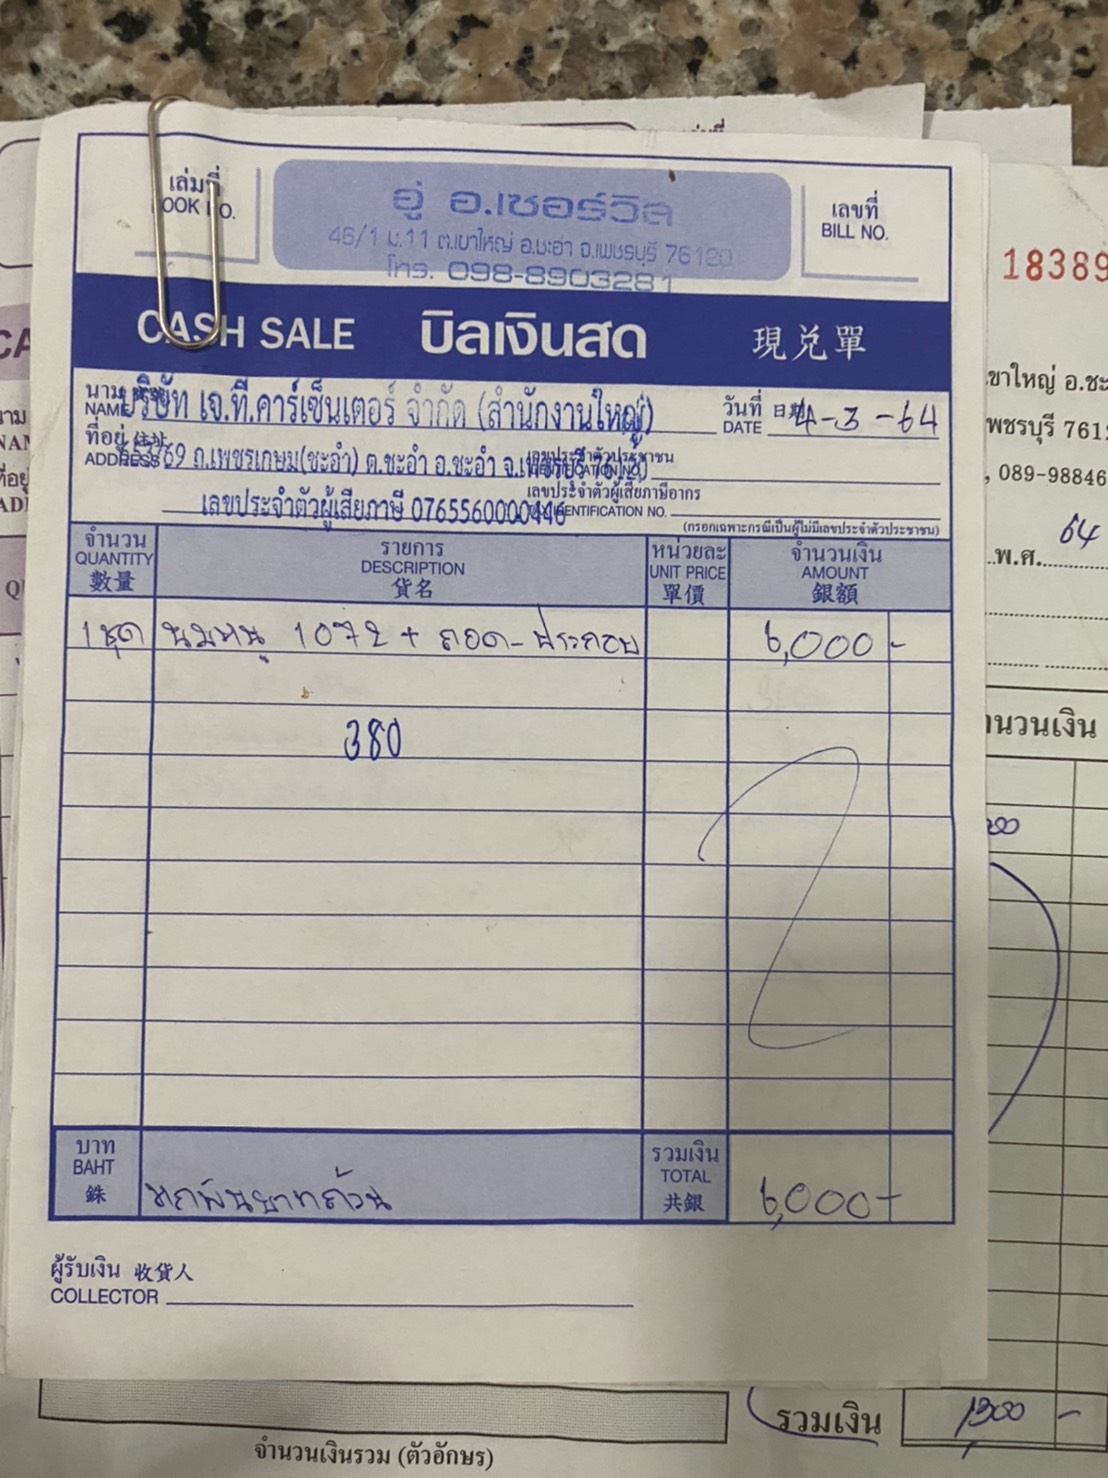 เล่มที่
BOOK NO.
อู่ อ.เซอร์วิส
46/1 ม.11 ต.เขาใหญ่ อ.ชะอำ จ.เพชรบุรี 76120
โทร. 098-8903281
เลขที่
BILL NO.
CASH SALE บิลเงินสด 現兌單
นาม
NAME บริษัท เจ.ที.คาร์เซ็นเตอร์ จำกัด (สำนักงานใหญ่)
วันที่ 日期
DATE 4-3-64
ที่อยู่ 住址
ADDRESS ถ.เพชรเกษม(ชะอำ) ต.ชะอำ อ.ชะอำ จ.เพชรบุรี 76120
เลขประจำตัวประชาชน
เลขประจำตัวผู้เสียภาษีอากร
เลขประจำตัวผู้เสียภาษี 0765560000446
IDENTIFICATION NO.
(กรอกเฉพาะกรณีเป็นผู้ไม่มีเลขประจำตัวประชาชน)
จำนวน รายการ หน่วยละ จำนวนเงิน
QUANTITY DESCRIPTION UNIT PRICE AMOUNT
數量 貨名 單價 銀額
1 ชุด นมหนู 1072 + ถอด-ประกอบ 6,000 -
380
บาท
BAHT
銖
หกพันบาทถ้วน
รวมเงิน
TOTAL
共銀
6,000 -
ผู้รับเงิน 收貨人
COLLECTOR
18389
ขาใหญ่ อ.ชะ
พชรบุรี 761
, 089-98846
พ.ศ. 64
านวนเงิน
รวมเงิน 1,300 -
จำนวนเงินรวม (ตัวอักษร)